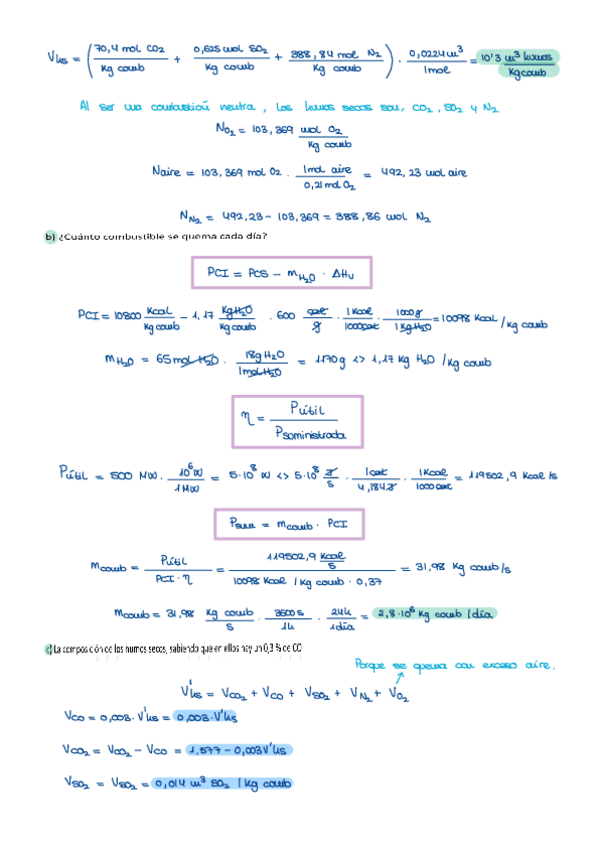 V_hs = (70,4 mol CO2 / Kg comb + 0,625 mol SO2 / Kg comb + 388,84 mol N2 / Kg comb) · 0,0224 m³ / 1mol = 10'3 m³ humos / Kg comb
Al ser una combustión neutra, los humos secos son, CO2, SO2 y N2
N_O2 = 103,369 mol O2 / Kg comb
Naire = 103,369 mol O2 · 1mol aire / 0,21 mol O2 = 492,23 mol aire
N_N2 = 492,23 - 103,369 = 388,86 mol N2
b) ¿Cuánto combustible se quema cada día?
PCI = PCS - m_H2O · ΔHv
PCI = 10800 Kcal / Kg comb - 1,17 Kg H2O / Kg comb · 600 cal / g · 1 Kcal / 1000 cal · 1000 g / 1 Kg H2O = 10098 Kcal / Kg comb
m_H2O = 65 mol H2O · 18g H2O / 1mol H2O = 1170 g <> 1,17 Kg H2O / Kg comb
η = Pútil / Psoministrada
Pútil = 500 MW · 10⁶ W / 1 MW = 5·10⁸ W <> 5·10⁸ J / s · 1 cal / 4,184 J · 1 Kcal / 1000 cal = 119502,9 Kcal/s
Psum = mcomb · PCI
mcomb = Pútil / PCI · η = 119502,9 Kcal / s / 10098 Kcal / Kg comb · 0,37 = 31,98 Kg comb/s
mcomb = 31,98 Kg comb / s · 3600 s / 1h · 24h / 1día = 2,8·10⁶ Kg comb / día
c) La composición de los humos secos, sabiendo que en ellos hay un 0,3 % de CO
Porque se quema con exceso aire.
V'hs = V_CO2 + V_CO + V_SO2 + V_N2 + V_O2
V_CO = 0,003 · V'hs = 0,003 · V'hs
V_CO2 = V_CO2 - V_CO = 1,577 - 0,003 V'hs
V_SO2 = V_SO2 = 0,014 m³ SO2 / Kg comb